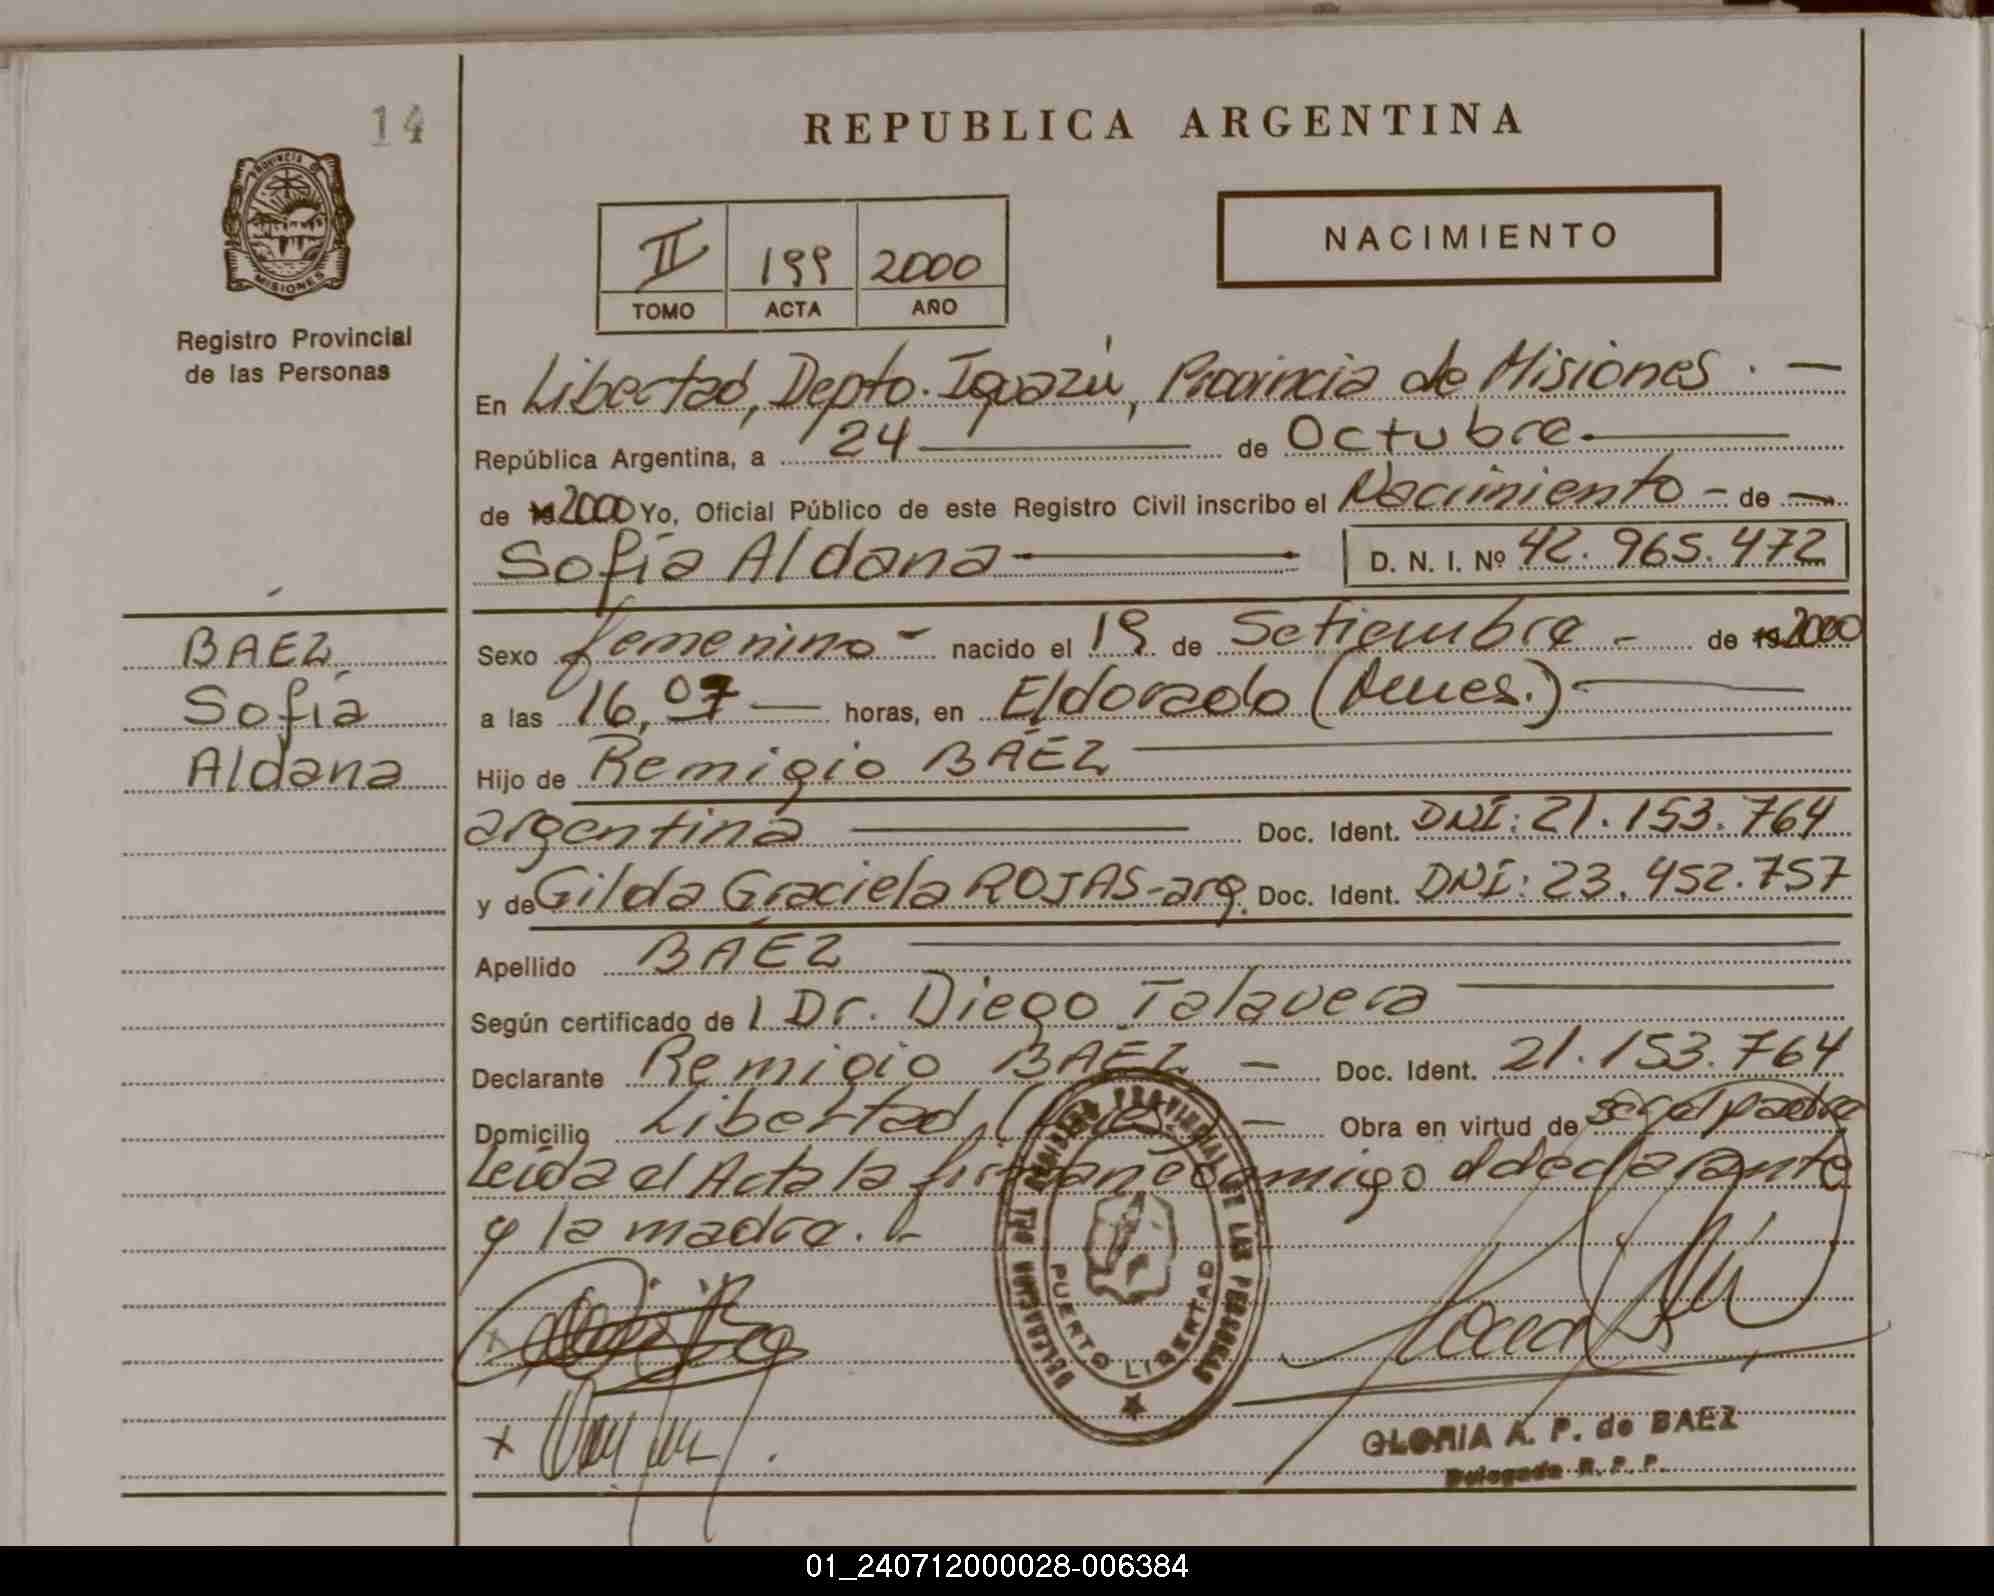 14
REPUBLICA ARGENTINA
PROVINCIA D
MISIONES
Registro Provincial
de las Personas
II 199 2000
TOMO ACTA AÑO
NACIMIENTO
En Libertad, Depto. Iguazú, Provincia de Misiones . —
República Argentina, a 24 — de Octubre. —
de 19 2000 Yo, Oficial Público de este Registro Civil inscribo el Nacimiento - de —
Sofía Aldana — D. N. I. Nº 42.965.472
BAEZ
Sofía
Aldana
Sexo femenino - nacido el 19 de Setiembre - de 19 2000
a las 16,07 — horas, en Eldorado (Mnes.) —
Hijo de Remigio BÁEZ —
argentina — Doc. Ident. DNI: 21.153.764
y de Gilda Graciela ROJAS-arg. Doc. Ident. DNI: 23.452.757
Apellido BÁEZ —
Según certificado de l Dr. Diego Talavera —
Declarante Remigio BAEZ — Doc. Ident. 21.153.764
Domicilio Libertad (Mnes.) — Obra en virtud de ser el padre
Leída el Acta la firman conmigo el declarante
y la madre.
DELEGACION DEL REGISTRO PROVINCIAL DE LAS PERSONAS
PUERTO LIBERTAD
x
x
GLORIA A. P. de BAEZ
Delegada R. P. P.
01_240712000028-006384